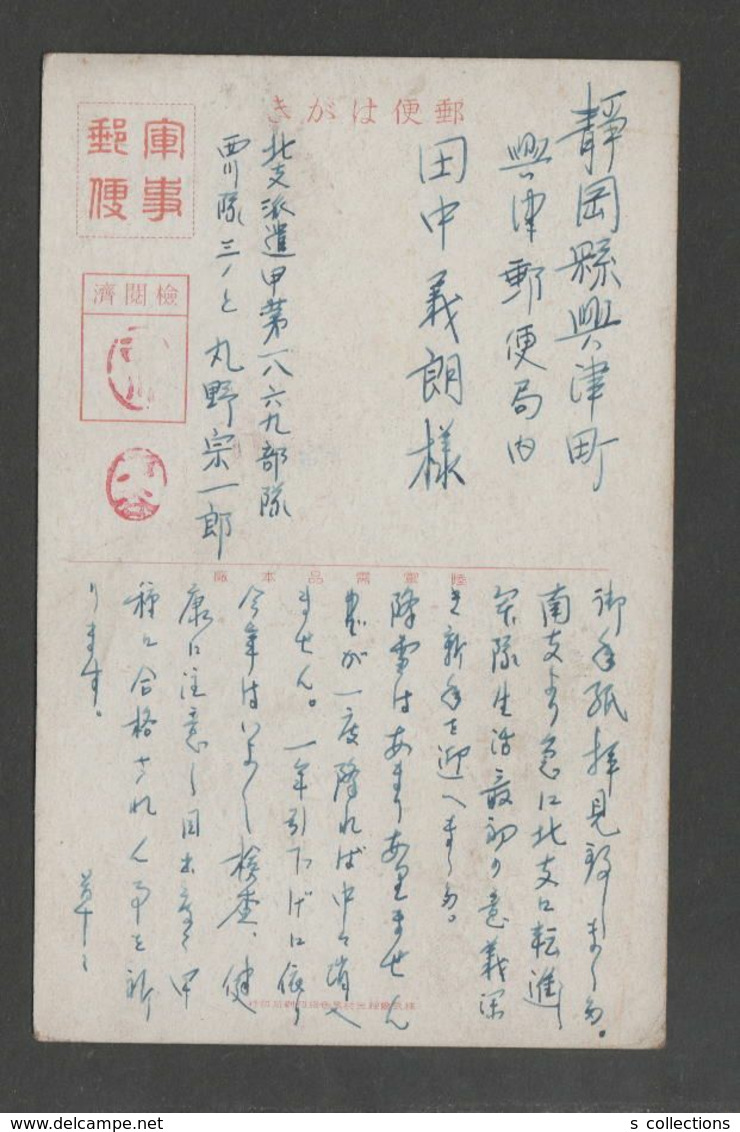 郵便はがき
軍事
郵便
検閲済
靜岡縣興津町
興津郵便局内
田中義朗様
北支派遣甲第一八六九部隊
西川隊三ノと 丸野宗一郎
陸軍需品本廠
御手紙拝見致しました。
南支より急に北支に転進し
軍隊生活最初の意義深
き新年を迎へました。
降雪はあまりありません
が一度降れば中々消へ
ません。一年引下げに依り
今年はいよいよ検査、健
康に注意し目出度く甲
種に合格されん事を祈
ります。
草々
s collections